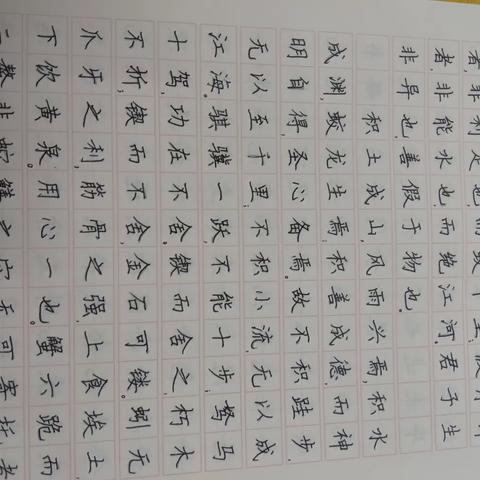 者,非利足也,而致千里;
者,非能水也,而绝江河。君子生
非异也,善假于物也。
积土成山,风雨兴焉,积水
成渊,蛟龙生焉;积善成德,而神
明自得,圣心备焉。故不积跬步,
无以至千里;不积小流,无以成
江海。骐骥一跃,不能十步;驽马
十驾,功在不舍。锲而舍之,朽木
不折;锲而不舍,金石可镂。蚓无
爪牙之利,筋骨之强,上食埃土,
下饮黄泉。用心一也。蟹六跪而
二螯,非蛇鳝之穴无可寄托者